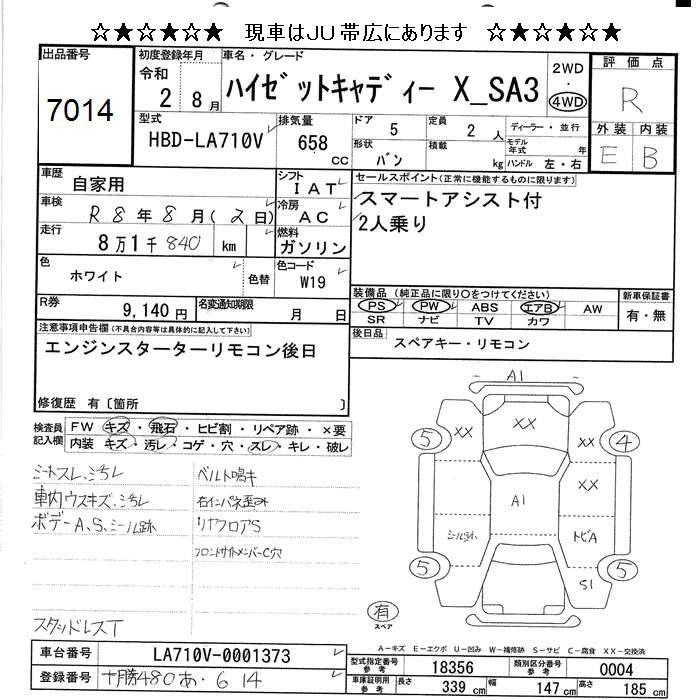 ☆★☆★☆★ 現車はJU帯広にあります ☆★☆★☆★
出品番号 7014
初度登録年月 令和 2 8月
車名・グレード ハイゼットキャディー X_SA3
2WD ・ 4WD
評価点 R
外装 内装
E B
型式 HBD-LA710V
排気量 658 CC
ドア 5
定員 2 人
ディーラー・並行
形状 バン
積載 kg
モデル年式 年
ハンドル 左・右
車歴 自家用
シフト IAT
車検 R8年8月(2日)
冷房 AC
走行 8万1千840 km
燃料 ガソリン
セールスポイント(正常に機能するものに限ります)
スマートアシスト付
2人乗り
色 ホワイト 色替
色コード W19
R券 9,140円
名変通知期限 月 日
装備品 (純正品に限り○をつけてください)
PS PW ABS エアB AW
SR ナビ TV カワ
新車保証書 有・無
後日品 スペアキー・リモコン
注意事項申告欄(不具合内容等は具体的に記入して下さい)
エンジンスターターリモコン後日
修復歴 有〔箇所 〕
検査員記入欄
FW キズ・飛石・ヒビ割・リペア跡・×要
内装 キズ・汚レ・コゲ・穴・スレ・キレ・破レ
シートスレ、汚レ
ベルト鳴キ
車内ウスキズ、汚レ
右インパネ歪ミ
ボデーA、S、シール跡
リヤフロアS
フロントサイドメンバーC穴
スタッドレスT
A1
XX XX XX
5 4
XX
A1
シール跡 トビA
5 5
S1
有 スペア
A-キズ E-エクボ U-凹み W-補修跡 S-サビ C-腐食 XX-交換済
車台番号 LA710V-0001373
登録番号 十勝480あ・614
型式指定番号 参考 18356
類別区分番号 参考 0004
車庫証明用 参考 長さ 339 cm 幅 147 cm 高さ 185 cm